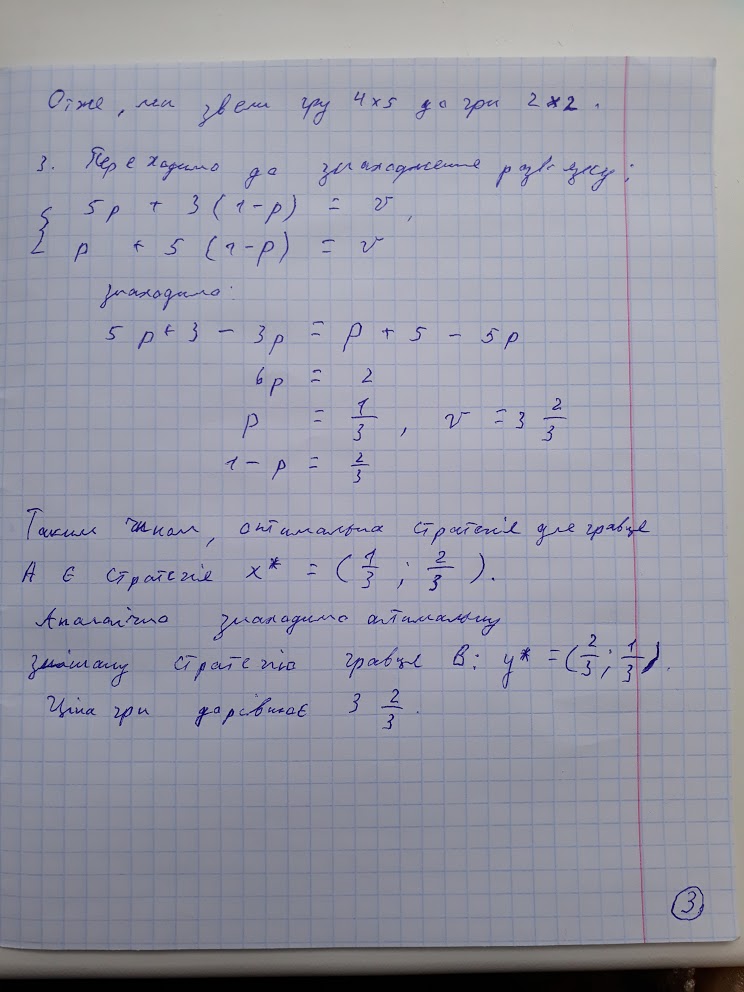 Отже, ми звели гру 4×5 до гри 2×2.
3. Переходимо до знаходження розв'язку:
{ 5p + 3(1-p) = v,
p + 5(1-p) = v
знаходимо:
5p+3 - 3p = p + 5 - 5p
6p = 2
p = 1/3, v = 3 2/3
1-p = 2/3
Таким чином, оптимальна стратегія для гравця
А є стратегія x* = (1/3; 2/3).
Аналогічно знаходимо оптимальну
змішану стратегію гравця В: y* = (2/3; 1/3).
Ціна гри дорівнює 3 2/3.
3